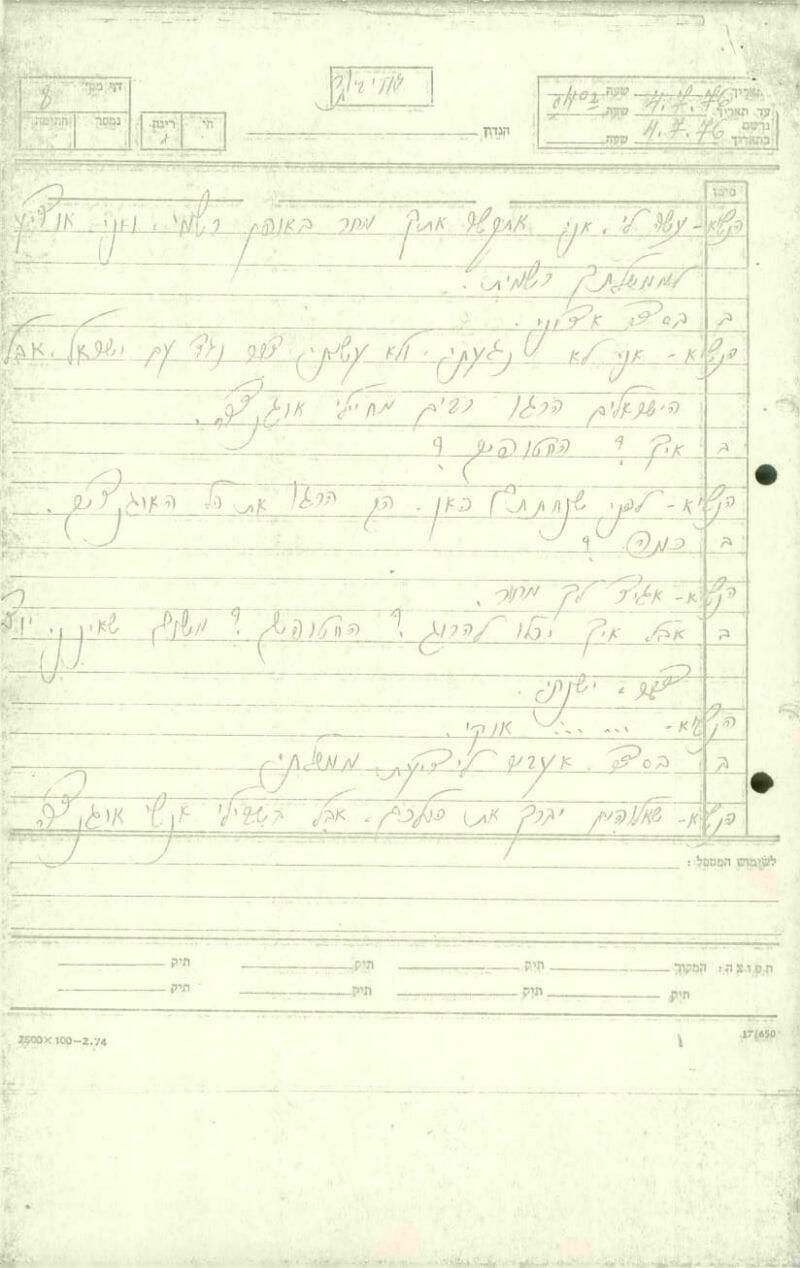 דף מס׳ 8
נמסר חתימה
סודי ביותר
חי רינת
הנדון
תאריך 4.7.76 שעה
עד תאריך שעה
נרשם בתאריך 4.7.76 שעה
סימן
הנשיא - עשה לי. אני אתקשר אתך מחר באופן רשמי. ואני אודיע
לממשלתך רשמית.
ב בסדר אדוני.
הנשיא - אני לא נגעתי. ולא עשיתי דבר נגד עם ישראל. אבל
הישראלים הרגו רבים מחיילי אוגנדה.
ב איך? החטופים?
הנשיא - לפני שנחתת"ל כאן. הם הרגו את כל האוגנדים.
ב כמה?
הנשיא - אגיד לך מחר.
ב אבל איך יכלו להרוג? החטופים? משום שאינני יודע
דבר. ישנתי.
הנשיא - ... ... אוקי.
ב בסדר. אעביר לידיעת ממשלתי
הנשיא - שאלוהים יברך את כולכם. אבל בשבילי אנשי אוגנדה
לשימוש המטפל:
תפוצה: המקור תיק תיק תיק
תיק תיק תיק תיק
2500×100-2.74
17/650